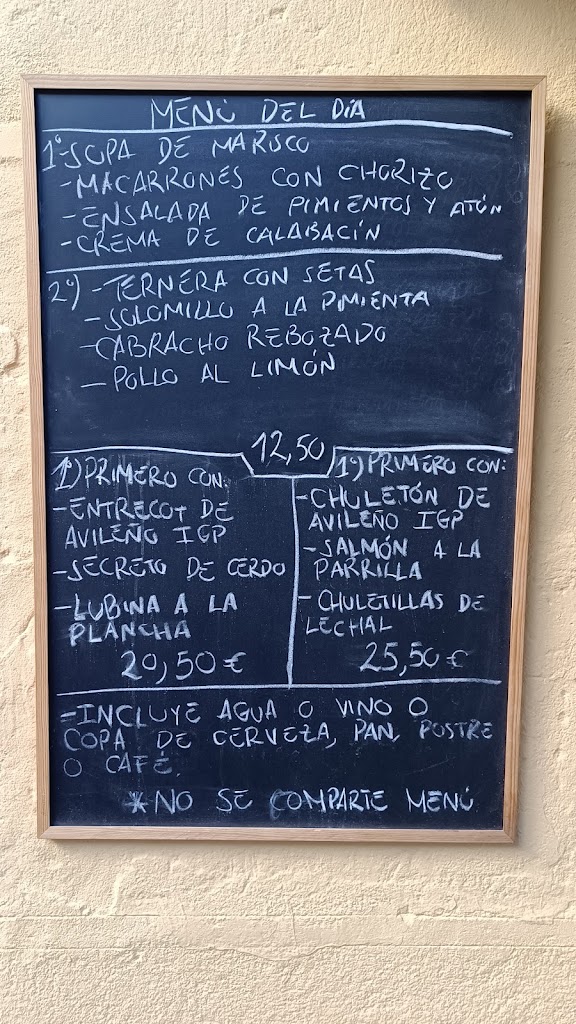 MENÚ DEL DÍA
1º-SOPA DE MARISCO
-MACARRONES CON CHORIZO
-ENSALADA DE PIMIENTOS Y ATÚN
-CREMA DE CALABACÍN
2º) -TERNERA CON SETAS
-SOLOMILLO A LA PIMIENTA
-CABRACHO REBOZADO
-POLLO AL LIMÓN
12,50
1º) PRIMERO CON:
-ENTRECOT DE
AVILEÑO IGP
-SECRETO DE CERDO
-LUBINA A LA
PLANCHA
20,50€
1º) PRIMERO CON:
-CHULETÓN DE
AVILEÑO IGP
-SALMÓN A LA
PARRILLA
-CHULETILLAS DE
LECHAL
25,50€
-INCLUYE AGUA O VINO O
COPA DE CERVEZA, PAN, POSTRE
O CAFÉ.
*NO SE COMPARTE MENÚ